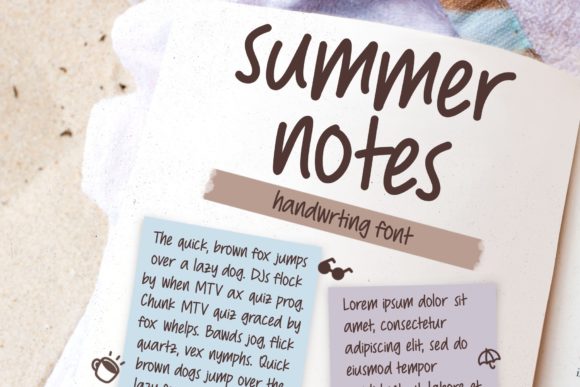 summer
notes
handwrting font
The quick, brown fox jumps
over a lazy dog. DJs flock
by when MTV ax quiz prog.
Chunk MTV quiz graced by
fox whelps. Bawds jog, flick
quartz, vex nymphs. Quick
brown dogs jump over the
lazy fox
Lorem ipsum dolor sit
amet, consectetur
adipiscing elit, sed do
eiusmod tempor